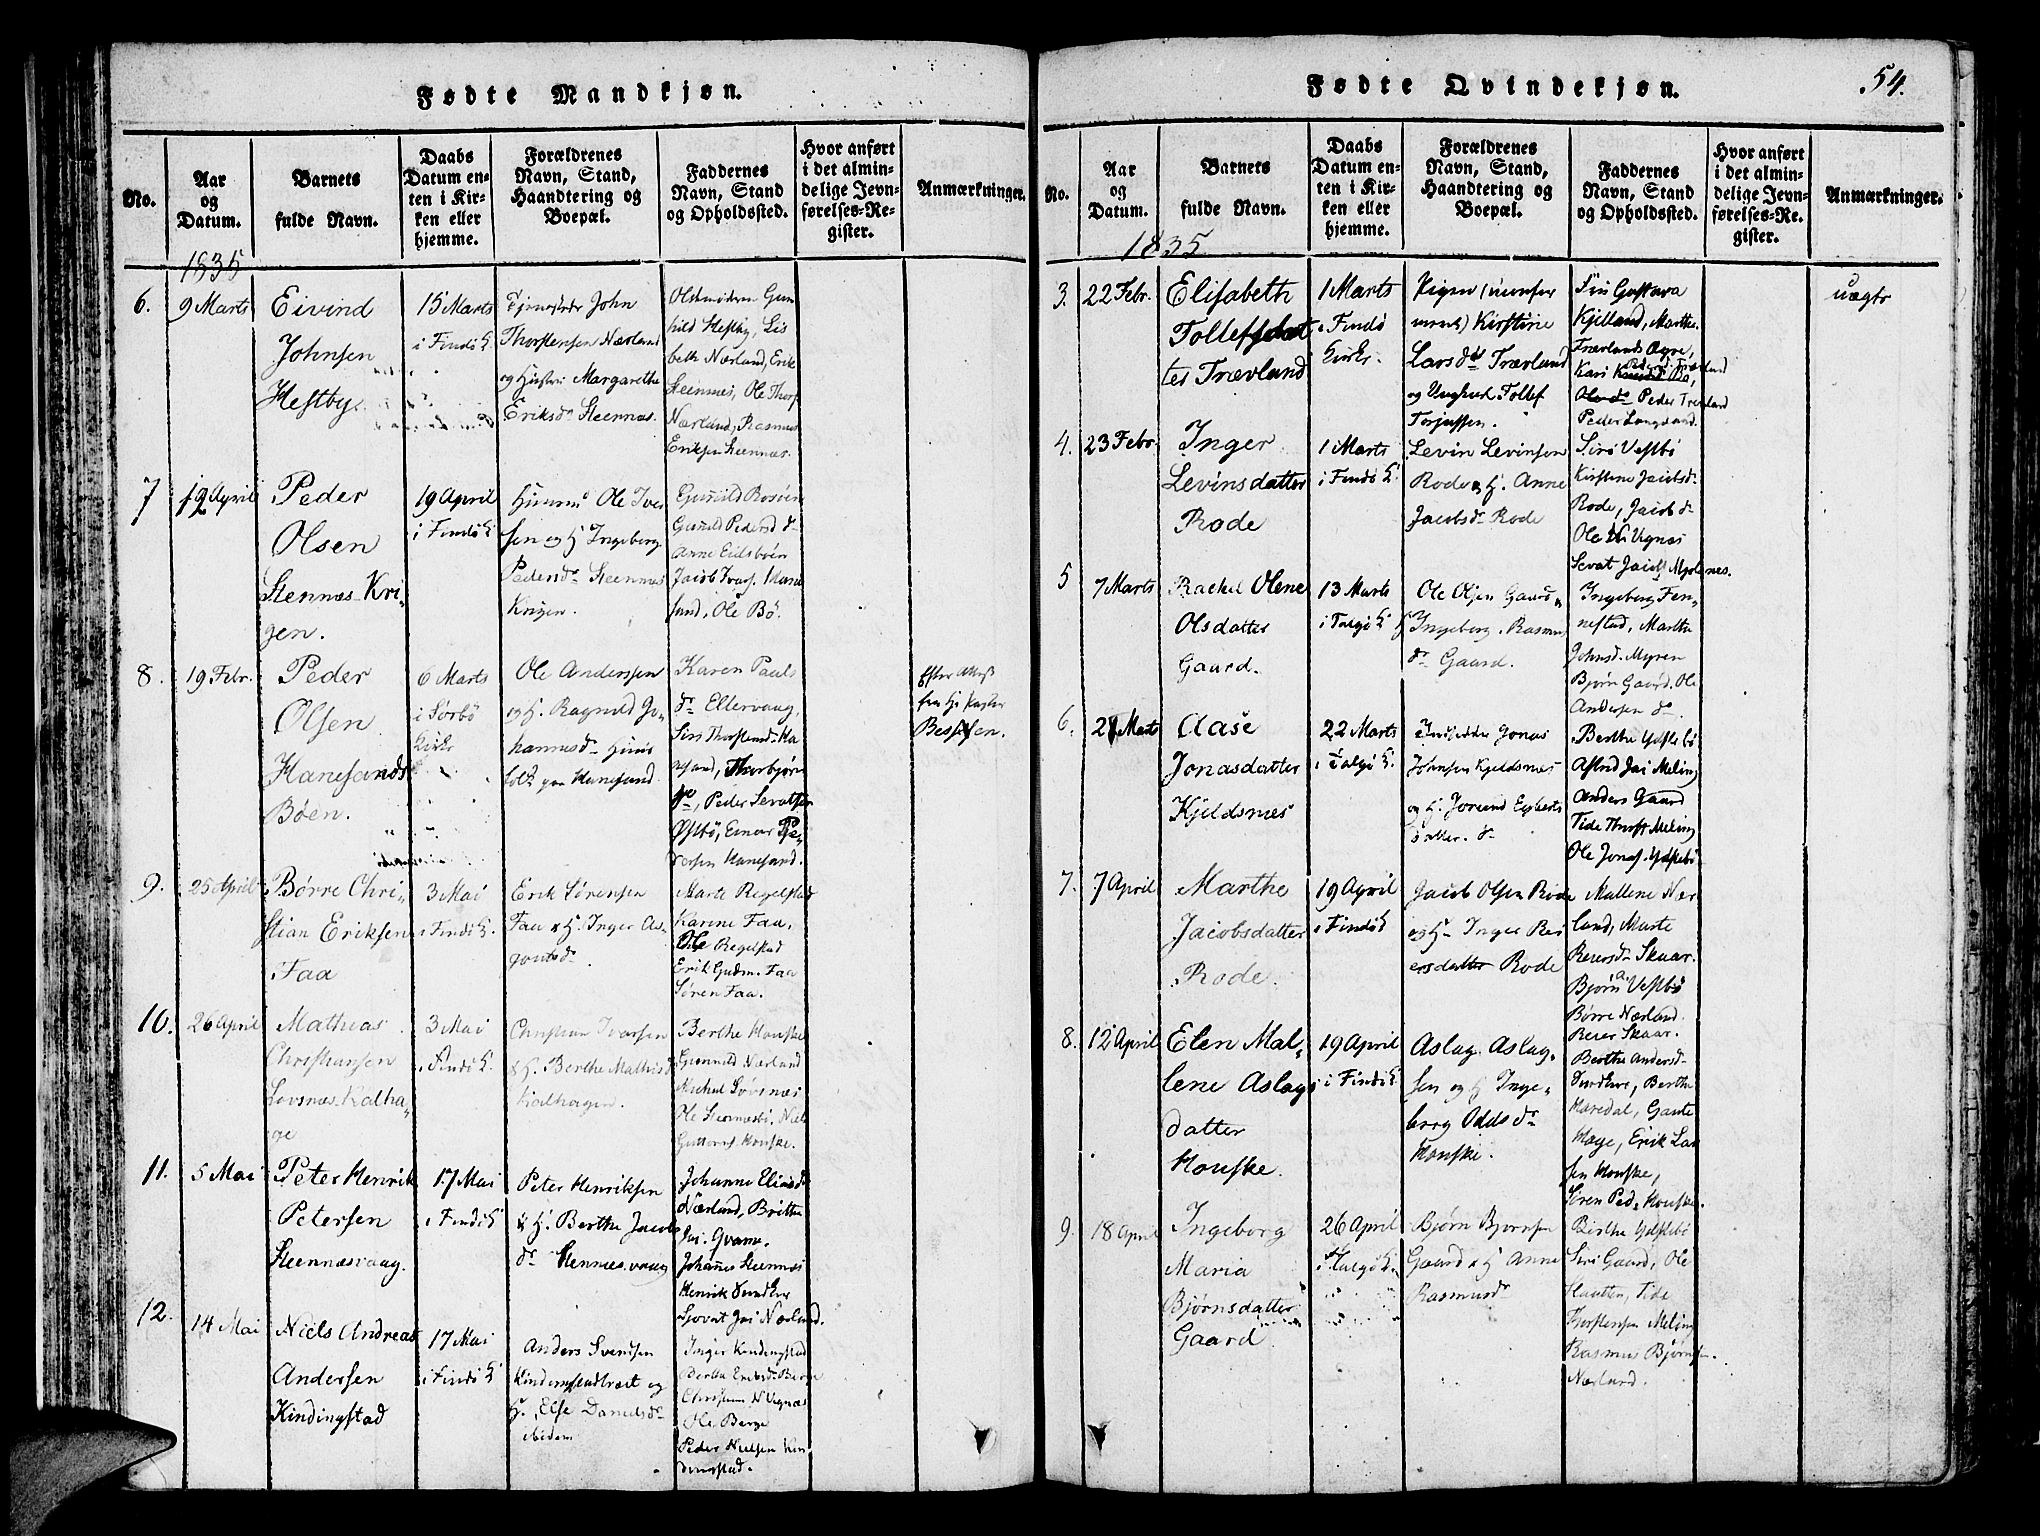 Fødte Mandkjøn.
No.
Aar
og
Datum.
Barnets
fulde Navn.
Daabs
Datum en-
ten i Kir-
ken eller
hjemme.
Forældrenes
Navn, Stand,
Haandtering og
Boepæl.
Faddernes
Navn, Stand
og Opholdssted.
Hvor anført
i det almin-
delige Jevn-
førelses-Re-
gister.
Anmærkninger.
1835
6.
9 Marts
Eivind
Johnsen
Hestbye
15 Marts
i Findö K.
John
Thorstensen Nærland
og Hustru Margarethe
Eriksd. Steennæs.
Gun
hild Hestby, Lis
beth Nærland, Erik
Steennæs, Ole Thors
Nærland, Rasmus
Eriksen Steennæs.
7
12 April
Peder
Olsen
Stennæs-Kri-
gen.
19 April
i Findö K
Huusm. Ole Iver
sen og H. Ingeborg
Pedersd. Steennæs
Krigen.
Gunild Rosöen
Gunild Pedersd. do
Anne Eidsboen
Jacob Ivars. Hane
sand, Ole Bö.
8.
19 Febr.
Peder
Olsen
Hanesands
Böen.
6 Marts
i Sörbö
Kirke
Ole Anderssen
og H. Ragnild Jo-
hannesd. Huus
folk paa Hanesand.
Karen Pauls
dr. Ellervaag,
Siri Thorstensd. Ha
nesand, Thorbjörn
do, Peder Sevatsen
Østbö, Einar Pe-
dersen Hanesand.
Efter Attest
fra Hr Pastor
Bessesen.
9.
25 April
Børre Chri-
stian Eriksen
Faa
3 Mai
i Findö K.
Erik Sørensen
Faa & H. Inger As-
gautsd.
Marte Regelstad
Karine Faa,
Ole Regelstad
Erik Gudm. Faa
Søren Faa.
10.
26 April
Mathias
Christiansen
Sovsnæs-Kalha-
ge
3 Mai
i Findö K.
Christian Ivarsen
& H. Berthe Mathisd
Kalhagen.
Berthe Houske
Gunnild Nærland
Michel Sövsnæs
Ole Steennæsbö, Niels
Guttorms. Houske.
11.
5 Mai
Peter Henrik
Petersen
Steennæsvaag.
17 Mai
i Findö K
Peter Henriksen
& H. Berthe Jacobs
dr Stennæsvaag
Johanne Eliasd.
Nærland, Brithe
Jac. Qvame.
Johannes Steennæs
Henrik
Sjovat Jac Nærland.
12.
14 Mai
Niels Andreas
Andersen
Kindingstad
17 Mai
i Findö K
Anders Svendsen
Kindingstadtræet og
H., Else Danielsdr.
ibidem
Inger Kindingstad
Berthe Bærge
Christian N Vignæs
Ole Berge
Peder Nielsen Kin
dingstad.
Fødte Qvindekjøn.
54.
No.
Aar
og
Datum.
Barnets
fulde Navn.
Daabs
Datum en-
ten i Kir-
ken eller
hjemme.
Forældrenes
Navn, Stand,
Haandtering og
Boepæl.
Faddernes
Navn, Stand
og Opholdssted.
Hvor anført
i det almin-
delige Jevn-
førelses-Re-
gister.
Anmærkninger.
1835
3.
22 Febr.
Elisabeth
Tollefsdat
ter Trævland
1 Marts
i Findö
Kirke.
Pigen
Kirstine
Larsdr Trævland
og Ungkarl Tollef
Torjussen.
Gustava
Kjelland, Marthe
Trævlands Øyre,
Kari Bö,
Peder Trevland
Peder Langeland.
uægte
4.
23 Febr.
Inger
Levinsdatter
Rode
1 Marts
i Findö K
Levin Levinsen
Rode & H. Anne
Jacobsdr Rode
Siri Vestbö
Kirstine Jacobsd.
Rode, Jacob do
Ole N Vignæs
Sevat Jacobs Mjølsnes.
5
7 Marts
Rachel Olene
Olsdatter
Gaard.
13 Marts
i Talgö K
Ole Olsen Gaard &
H Ingeborg Rasmus
dr Gaard.
Ingeborg Fen-
nestad, Marthe
Johnsd. Myren
Bjørn Gaard, Ole
Andersen do.
6.
21 Marts
Aase
Jonasdatter
Kjeldsnæs
22 Marts
i Talgö K.
Jonas
Johnsen Kjeldsnæs
og H. Jorund Egberts
datter. do
Berthe Ydstebö
Astrid Jac Meling
Anders Gaard
Tide Thorst Meling
Ole Jonas. Ydstebö
7.
7 April
Marthe
Jacobsdatter
Rode.
19 April
i Findö K
Jacob Olsen Rode
og H Inger Rei
ersdatter Rode
Mallene Nær
land, Marte
Reiersdr Skaar.
Bjørn Vestbö
Børre Nærland.
Reier Skaar.
8.
12 April
Elen Mal-
lene Aslags
datter
Houske.
19 April
i Findö K
Aslag Aslag-
sen og H Inge-
borg Oddsdr
Houske.
Berthe Andersd.
Berthe
Haredal, Gaute
Hage, Erik Lar
sen Houske,
Sören Peds Houske.
9.
18 April
Ingeborg
Maria
Bjørnsdatter
Gaard
26 April
i Talgö K.
Bjørn Bjørnsen
Gaard & H Anne
Rasmusdr
Birthe Ydstebö
Siri Gaard, Ole
Hauken, Tide
Thorstensen Meling
Rasmus Bjørnsen
Nærland.